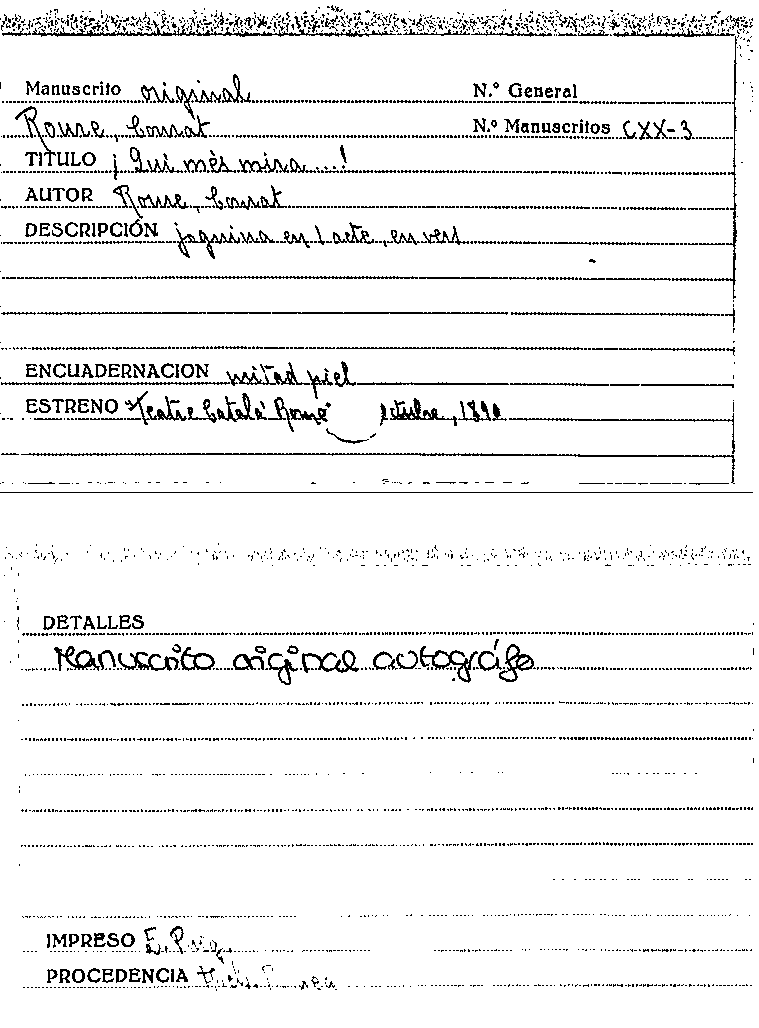 Manuscrito original N.º General
Roure, Conrat N.º Manuscritos CXX-3
TITULO ¡Qui més mira....!
AUTOR Roure, Conrat
DESCRIPCIÓN joguina en 1 acte, en vers
ENCUADERNACION mitad piel
ESTRENO "Teatre Català Romea" octubre, 1890
DETALLES
Manuscrito original autográfo
IMPRESO E. Puig.
PROCEDENCIA